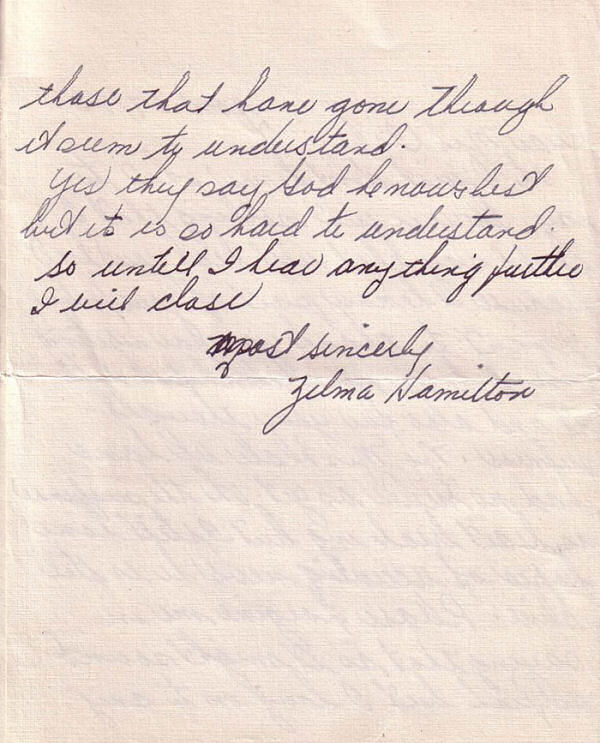 those that have gone through
it seem to understand.
Yes they say God knows best
but it is so hard to understand.
so untell I hear any thing further
I will close
most sincerly
Zelma Hamilton